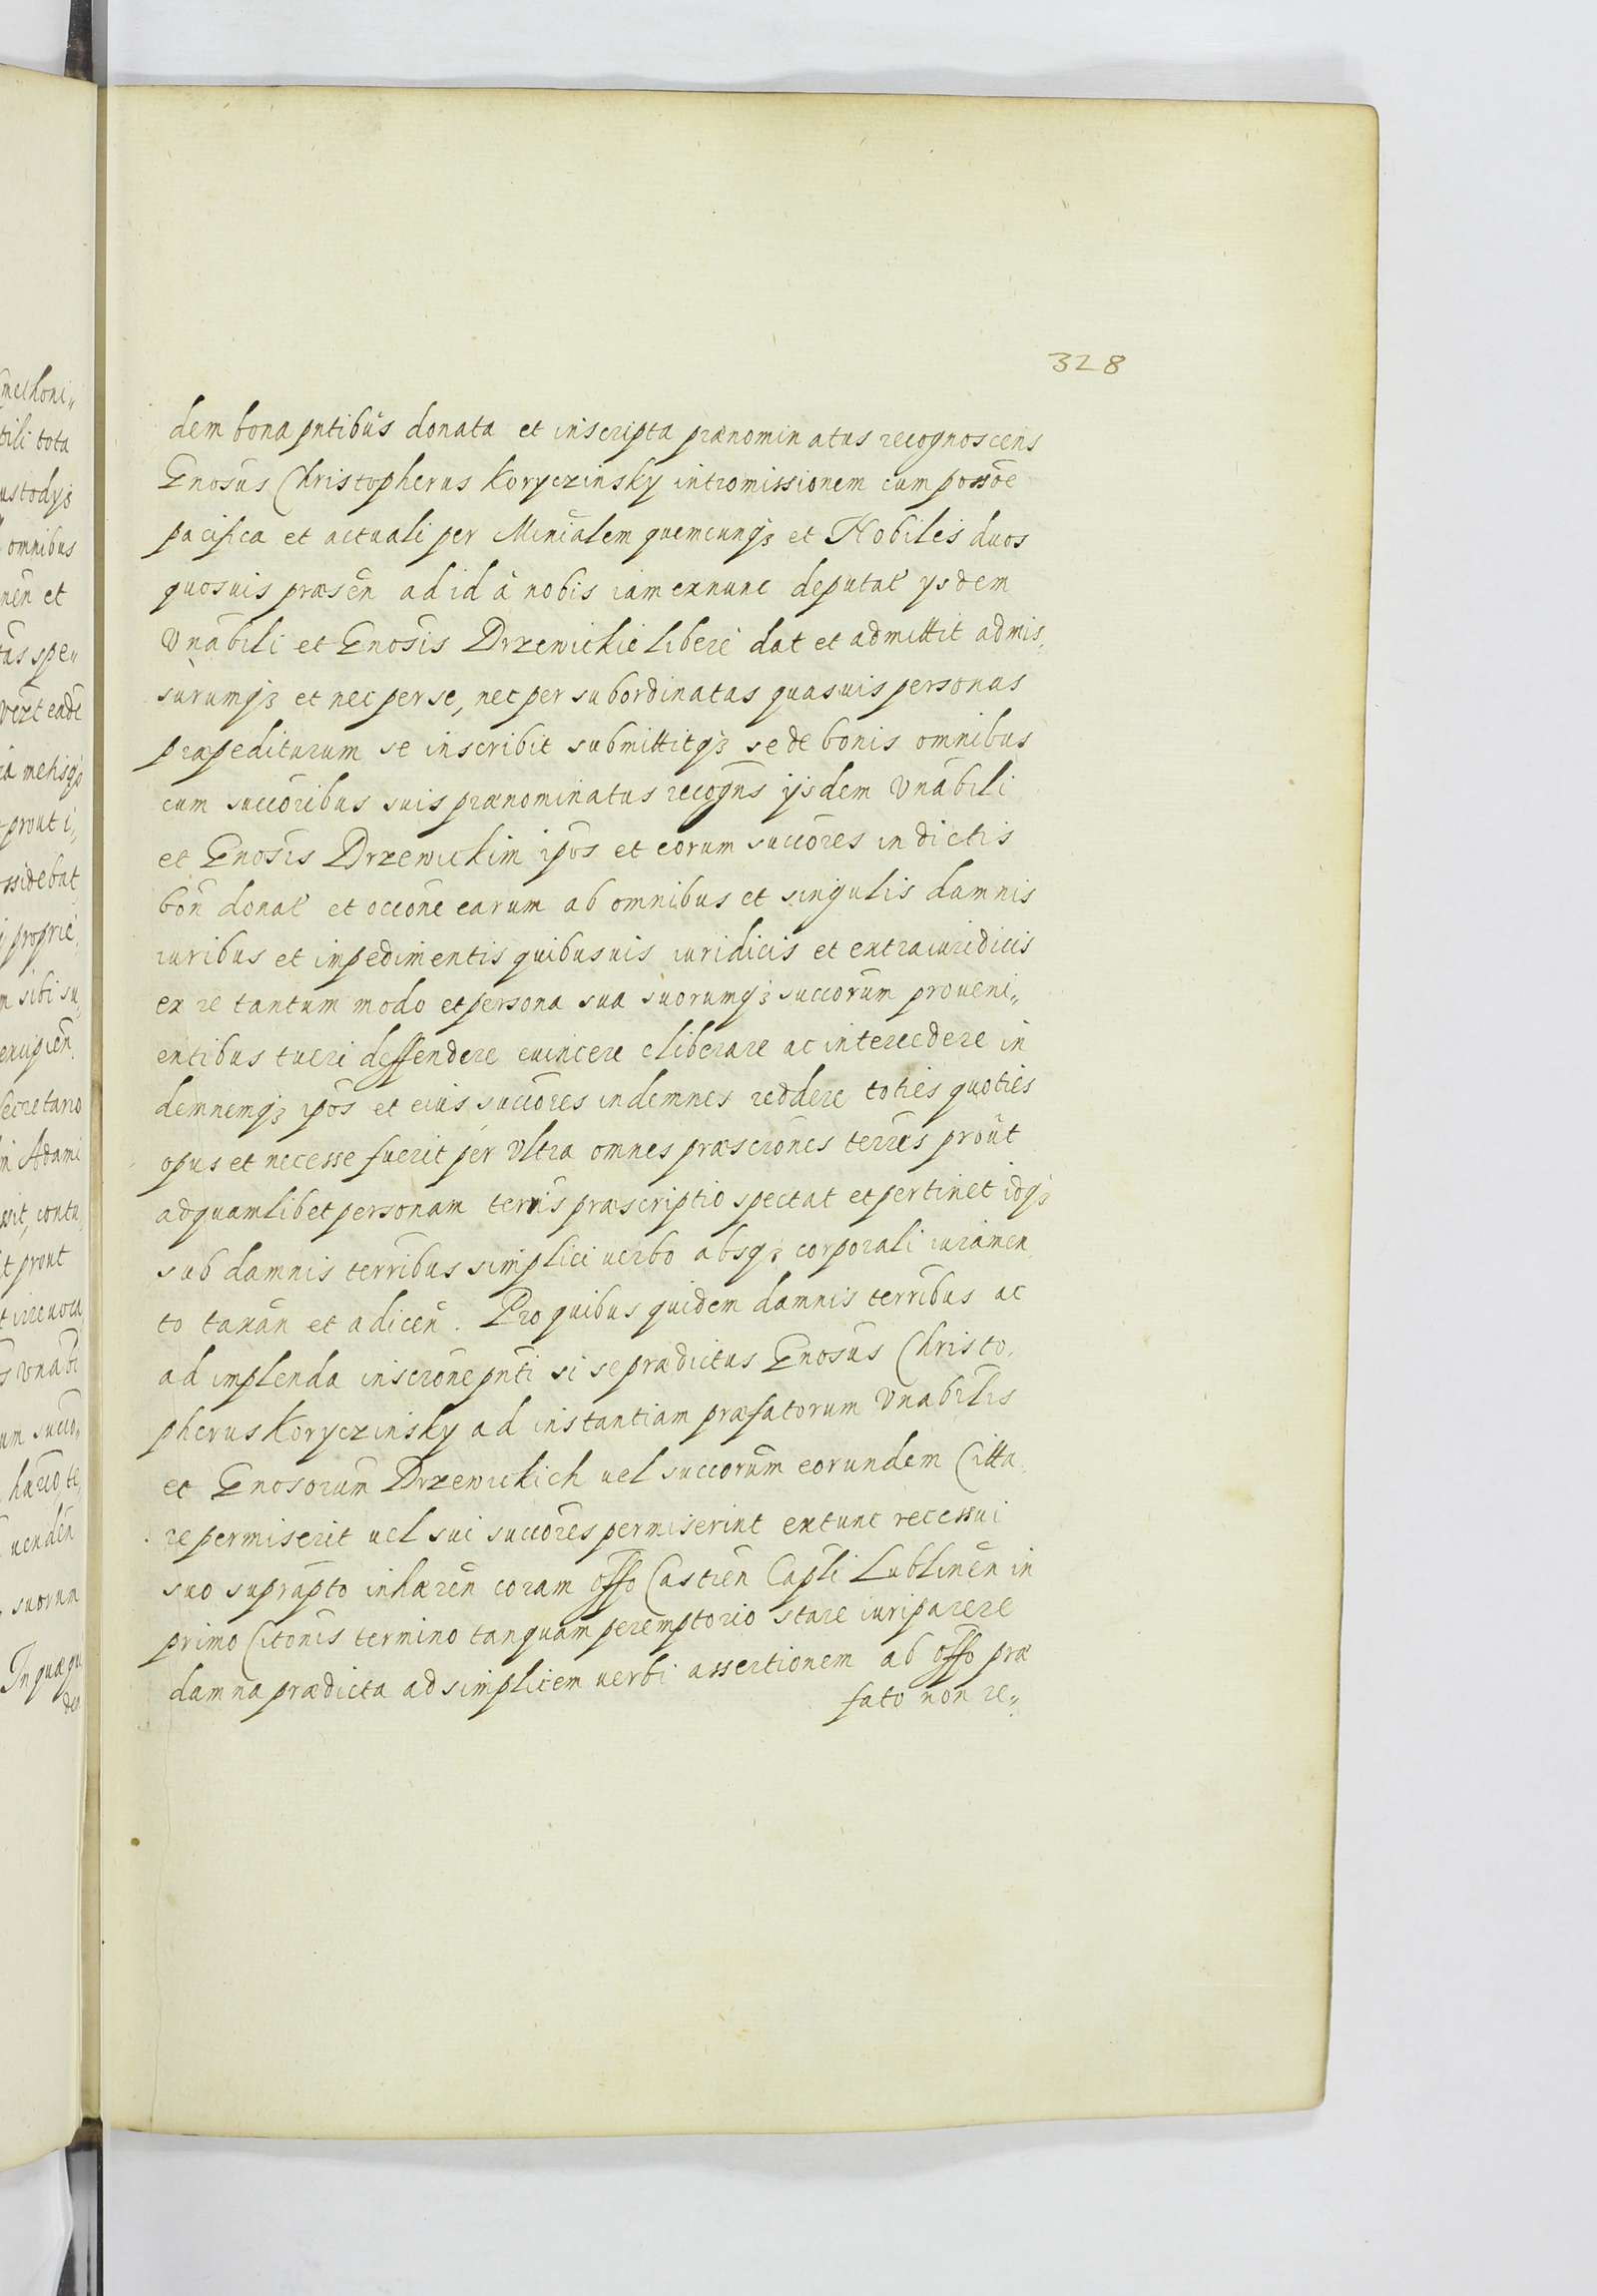 328
dem bona pntibus donata et inscripta prænominatus recognoscens
Gnosus Christopherus Koryczinsky intromissionem cum possōe
pacifica et actuali per Minīalem quemcunqȝ et Nobiles duos
quosuis præsēn ad id à nobis iam exnunc deputat ysdem
Vnābili et Gnosis Drzewickie liberè dat et admittit admis,
surumqȝ et nec per se, nec per subordinatas quasuis personas
præpediturum se inscribit submittitqȝ se de bonis omnibus
cum succōribus suis prænominatus recogns ijsdem Vnābili
et Gnosis Drzewickim ipos et eorum succōres in dictis
bon donat et occōne earum ab omnibus et singulis damnis
iuribus et impedimentis quibusuis iuridicis et extraiuridicis
ex re tantum modo et persona sua suorumqȝ succorūm proueni„
entibus tueri deffendere euincere eliberare ac intercedere in
demnemqȝ ipos et eius succōres indemnes reddere toties quoties
opus et necesse fuerit per Vltra omnes præscrōnes terres prout
ad quamlibet personam terris præscriptio spectat et pertinet idqȝ
sub damnis terribus simplici uerbo absqȝ corporali iuramen
to taxān et adicēn. Pro quibus quidem damnis terribus ac
adimplenda inscrōne pnti si se prædictus Gnosus Christo,
pherus Koryczinsky ad instantiam præfatorum Vnabilis
et Gnosorum Drzewickich uel succorūm eorundem Citta
re permiserit uel sui succōres permiserint extunc recessui
suo suprapto inhærēn coram offo Castrēn Capli Lublinēn in
primo Citōnis termino tanquam peremptorio stare iuri parere
damna prædicta ad simplicem uerbi assertionem ab offo præ
fato non re„